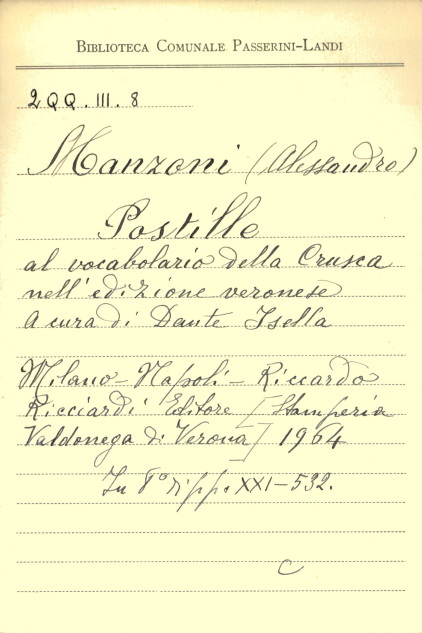 BIBLIOTECA COMUNALE PASSERINI-LANDI
2QQ.III.8
Manzoni (Alessandro)
Postille
al vocabolario della Crusca
nell'edizione veronese
A cura di Dante Isella
Milano - Napoli - Riccardo
Ricciardi Editore [Stamperia
Valdonega di Verona] 1964
In 8° di pp. XXI-532.
C